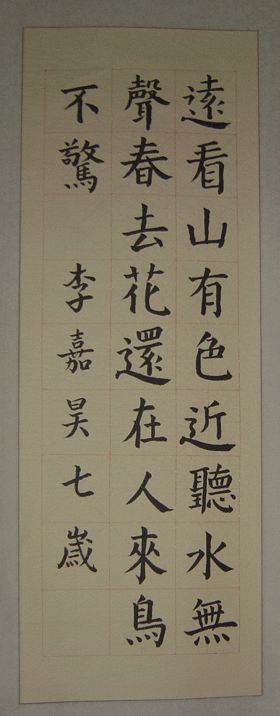 遠看山有色近聽水無
聲春去花還在人來鳥
不驚 李嘉昊七歲